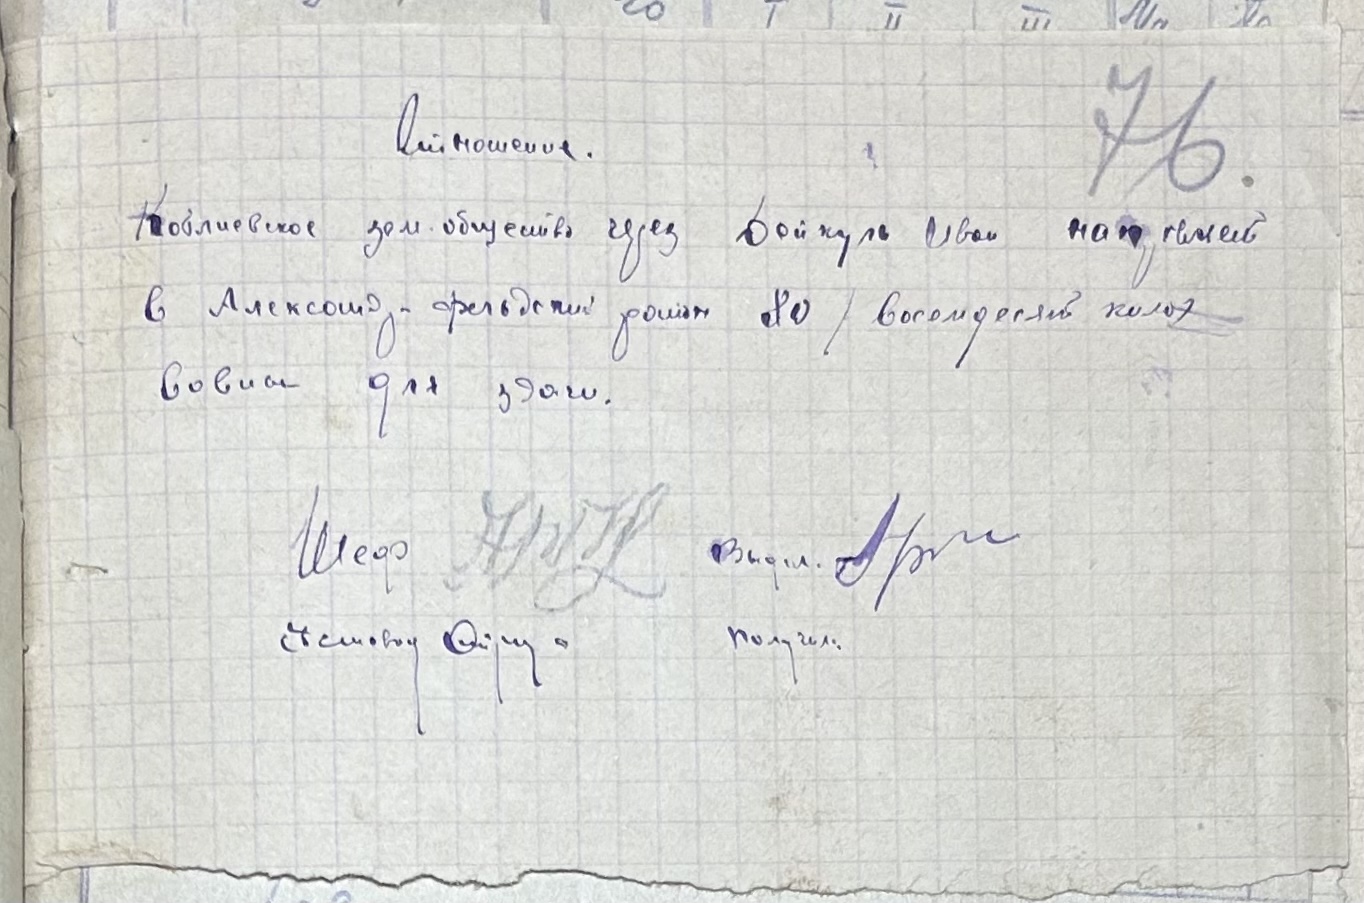 20 I II III
76.
Отношение.
Коблиевское зем. общество через Бойкуль Иван направляет
в Александр-фельдский район 80 / восемдесят колох
вовны для здачи.
Шеф Выдал.
Получил.